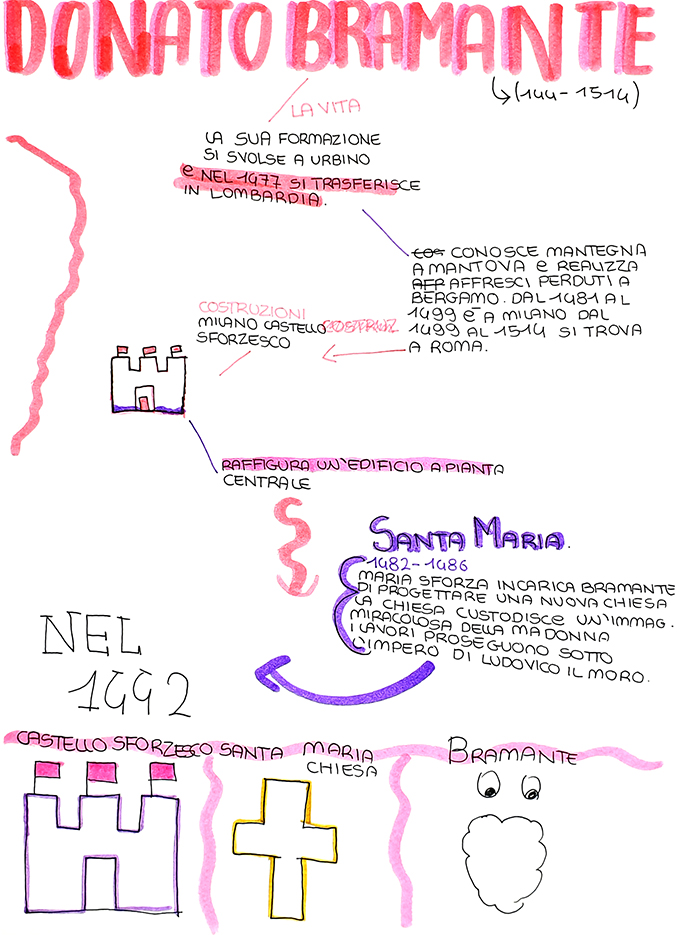 DONATO BRAMANTE
(144-1514)
LA VITA
LA SUA FORMAZIONE
SI SVOLSE A URBINO
e NEL 1477 SI TRASFERISCE
IN LOMBARDIA.
CONOSCE MANTEGNA
A MANTOVA e REALIZZA
AFF AFFRESCI PERDUTI A
BERGAMO. DAL 1481 AL
1499 E' A MILANO DAL
1499 AL 1514 SI TROVA
A ROMA.
COSTRUZIONI
MILANO CASTELLO COSTRUZ
SFORZESCO
RAFFIGURA UN'EDIFICIO A PIANTA
CENTRALE
SANTA MARIA.
1482-1486
MARIA SFORZA INCARICA BRAMANTE
DI PROGETTARE UNA NUOVA CHIESA
LA CHIESA CUSTODISCE UN'IMMAG.
MIRACOLOSA DELLA MADONNA
I LAVORI PROSEGUONO SOTTO
L'IMPERO DI LUDOVICO IL MORO.
NEL
1492
CASTELLO SFORZESCO SANTA MARIA
CHIESA
BRAMANTE